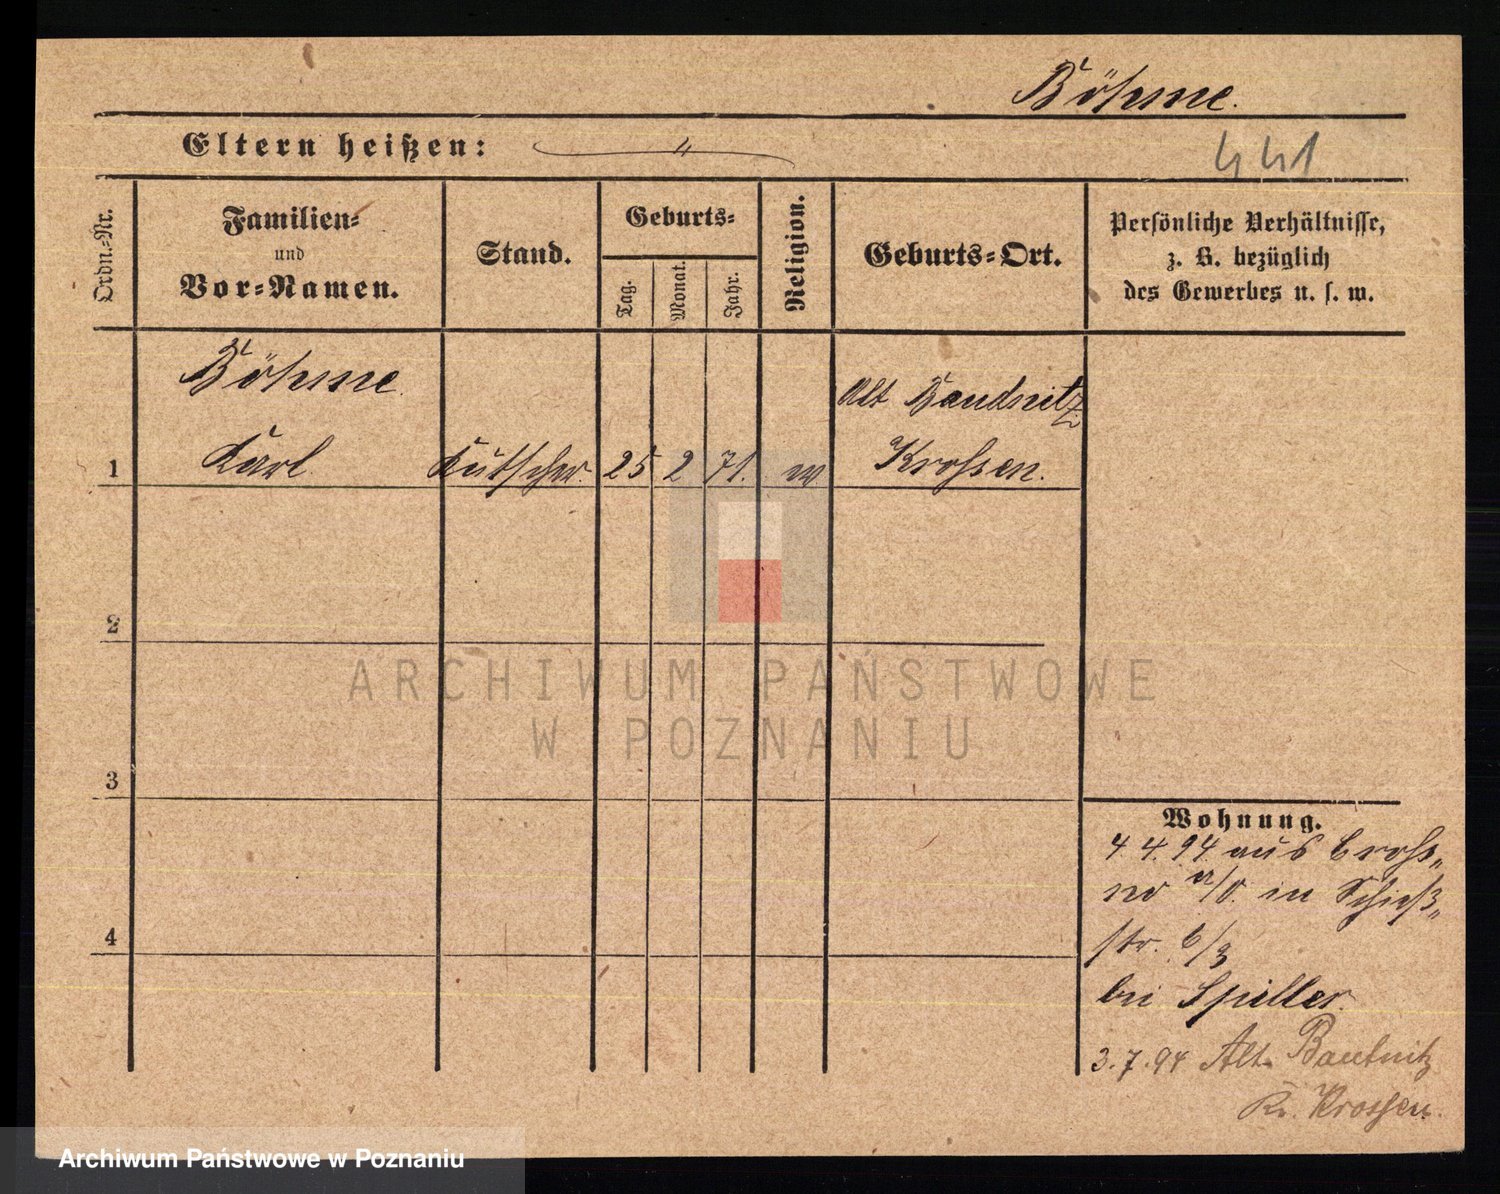 Böhme.
Eltern heißen: "
441
Ordn.-Nr.
Familien-
und
Vor-Namen.
Stand.
Geburts-
Tag.
Monat.
Jahr.
Religion.
Geburts-Ort.
Persönliche Verhältnisse,
z. B. bezüglich
des Gewerbes u. s. w.
Böhme
Alt
1 Karl Kutscher. 25 2 71. Krossen.
2
3
4
Wohnung.
4.4.94. aus Cross„
a/O. in Schieß„
str. 6/3
bei Spiller.
3.7.94 Alt-
Kr. Krossen.
ARCHIWUM PAŃSTWOWE
W POZNANIU
Archiwum Państwowe w Poznaniu